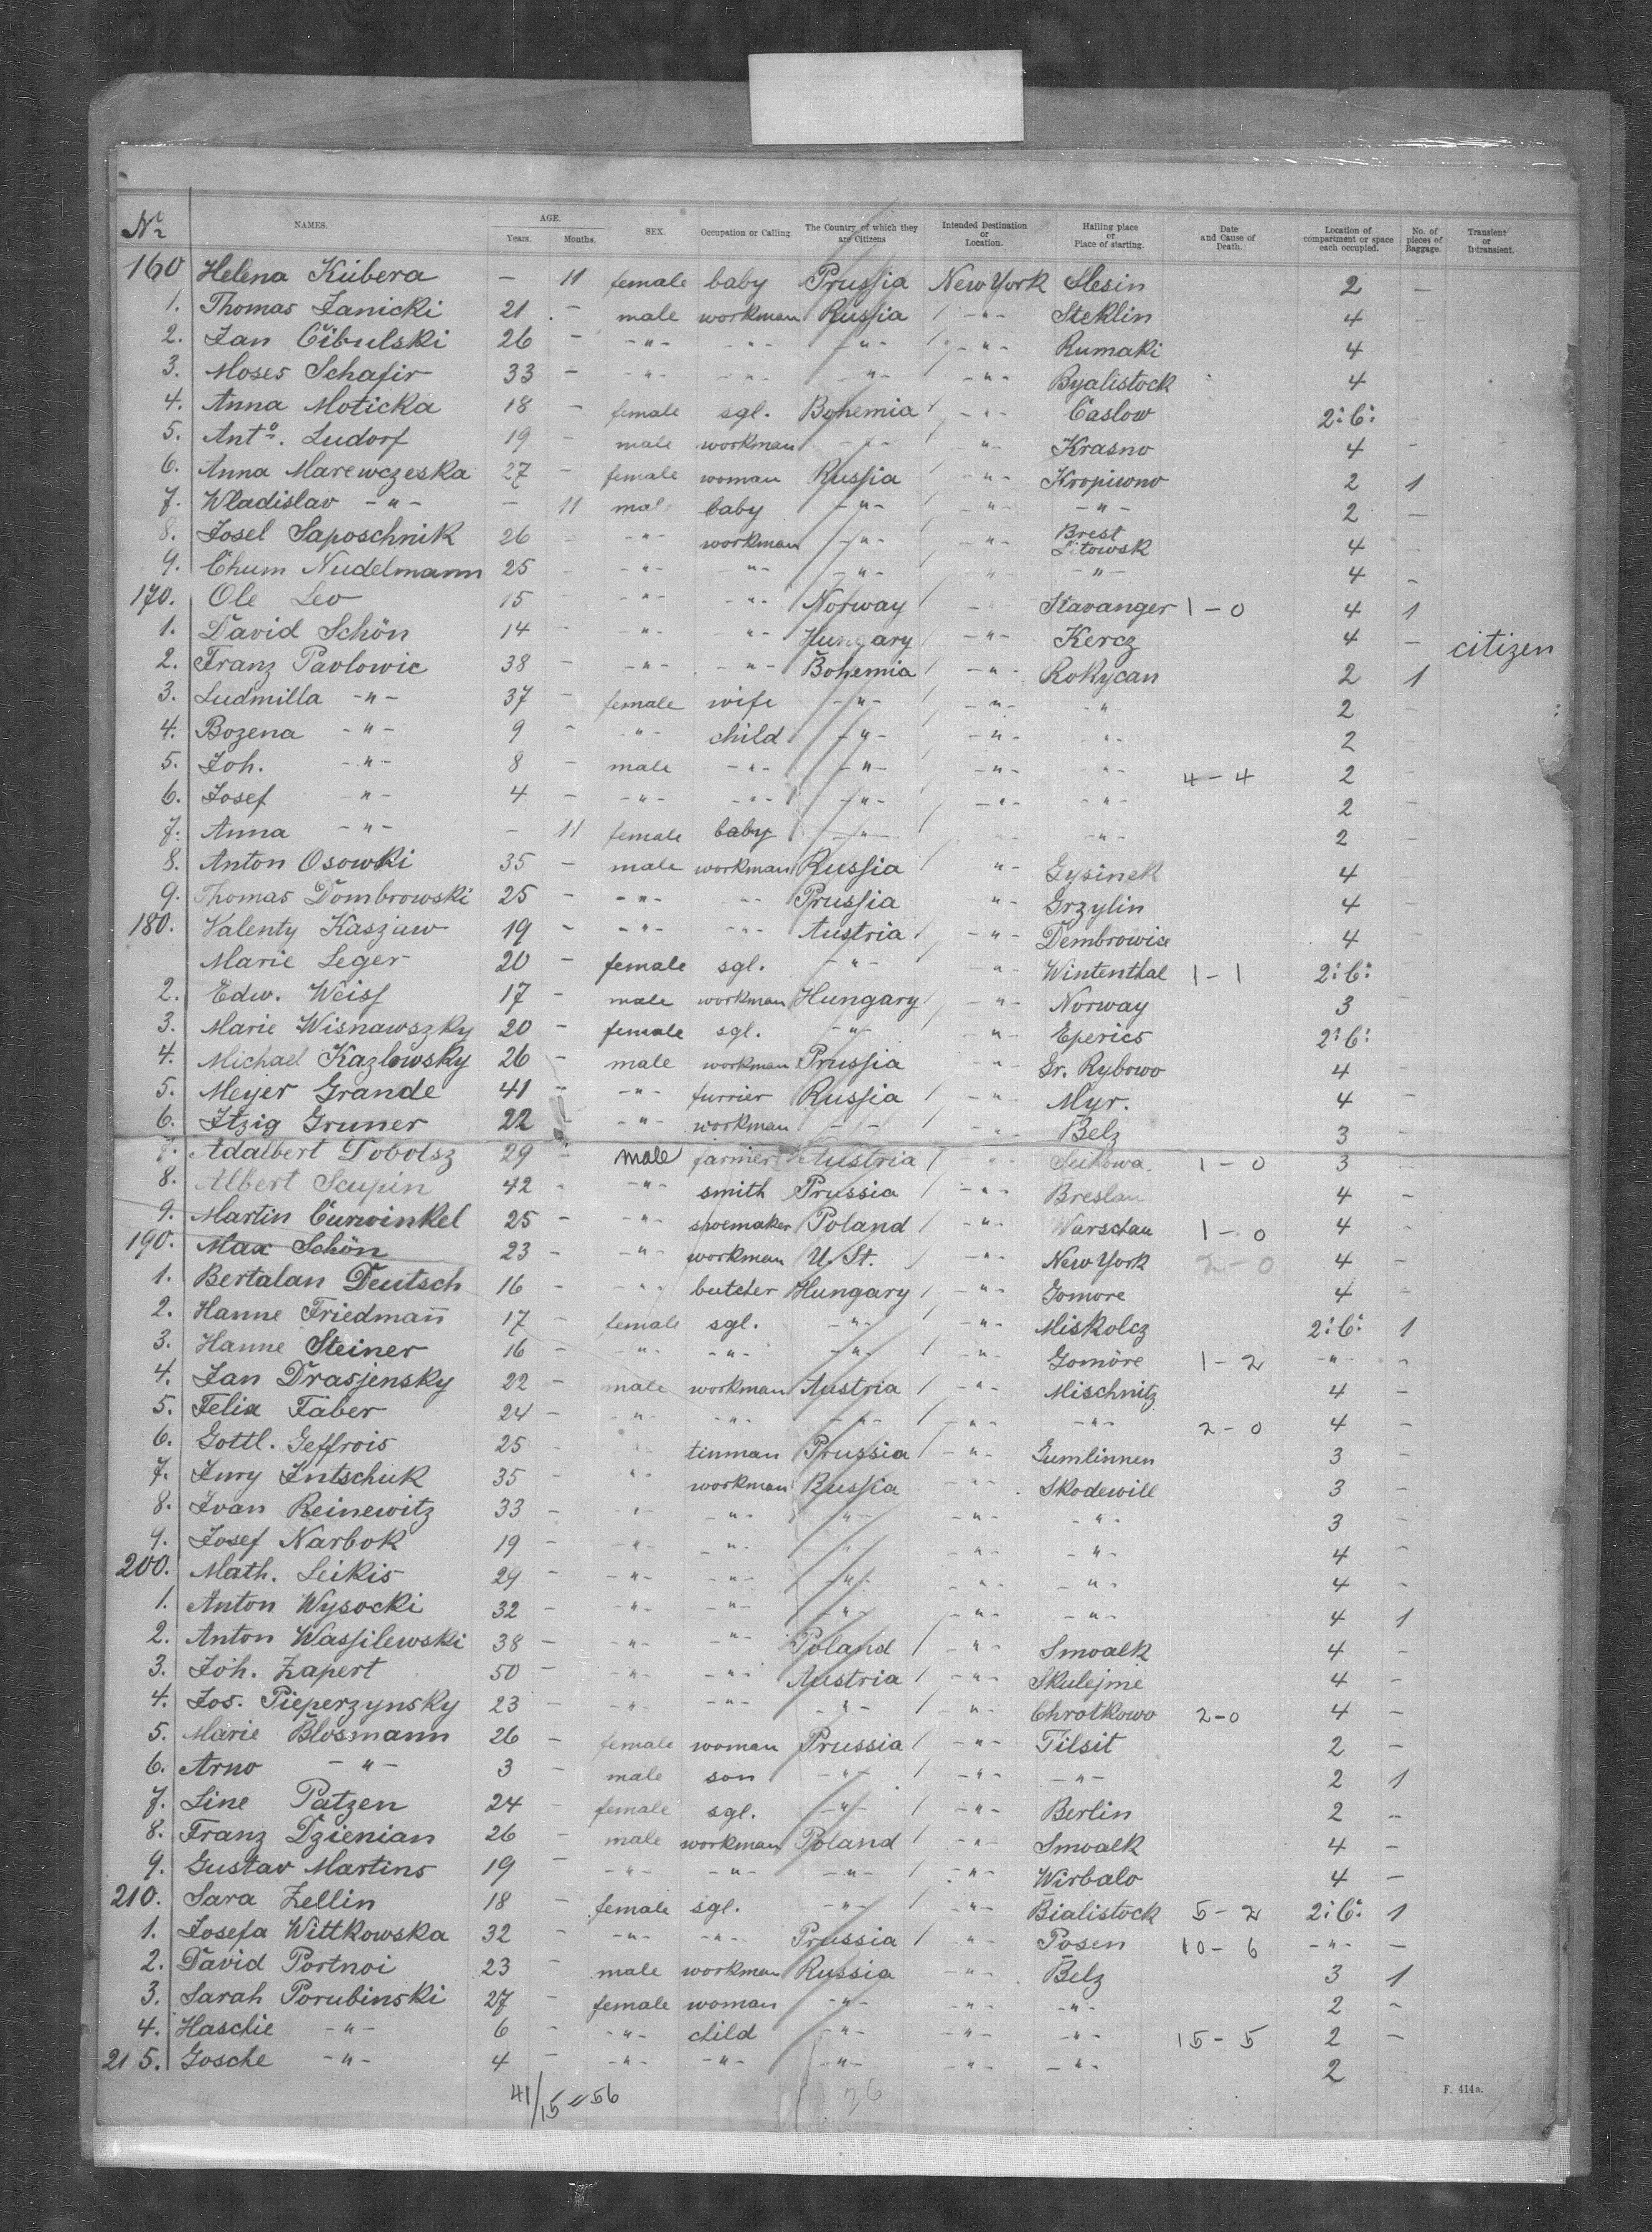 Nr NAMES. AGE. Years. Months. SEX. Occupation or Calling. The Country of which they are Citizens Intended Destination or Location. Hailing place or Place of starting. Date and Cause of Death. Location of compartment or space each occupied. No. of pieces of Baggage. Transient or Intransient.
160 Helena Kubera — 11 female baby Prussia New York Slesin 2 —
1. Thomas Janicki 21 - male workman Russia -"- Steklin 4
2. Jan Cibulski 26 - -"- -"- -"- -"- Rumaki 4
3. Moses Schafir 33 - -"- -"- -"- -"- Byalistock 4
4. Anna Moticka 18 - female sgl. Bohemia -"- Caslow 2:6:
5. Anto. Ludorf 19 - male workman -"- -"- Krasno 4 -
6. Anna Marewczeska 27 - female woman Russia -"- Kropiwno 2 1
7. Wladislav -"- — 11 male baby -"- -"- -"- 2 —
8. Josel Saposchnik 26 - -"- workman -"- -"- Brest Litowsk 4 -
9. Chum Nudelmann 25 - -"- -"- -"- -"- -"- 4 -
170. Ole Leo 15 -"- -"- Norway -"- Stavanger 1-0 4 1
1. David Schön 14 - -"- -"- Hungary -"- Kercz 4 - citizen
2. Franz Pavlowic 38 - -"- -"- Bohemia -"- Rokycan 2 1
3. Ludmilla -"- 37 - female wife -"- -"- -"- 2 -
4. Bozena -"- 9 - -"- child -"- -"- -"- 2 -
5. Joh. -"- 8 - male -"- -"- -"- -"- 4-4 2 -
6. Josef -"- 4 - -"- -"- -"- -"- -"- 2 -
7. Anna -"- — 11 female baby -"- -"- -"- 2 -
8. Anton Osowki 35 - male workman Russia -"- Gysinek 4 -
9. Thomas Dombrowski 25 - -"- -"- Prussia -"- Grzylin 4 -
180. Valenty Kaszjaw 19 - -"- -"- Austria -"- Dembrowice 4 -
Marie Leger 20 - female sgl. -"- -"- Wintenthal 1-1 2:6:
2. Edw. Weiss 17 - male workman Hungary -"- Norway 3
3. Marie Wisnawszky 20 - female sgl. -"- -"- Eperies 2:6:
4. Michael Kazlowsky 26 - male workman Prussia -"- Gr. Rybowo 4 -
5. Meyer Grande 41 -"- furrier Russia -"- Myr. 4 -
6. Itzig Gruner 22 -"- workman -"- -"- Belz 3 -
7. Adalbert Dobolsz 29 male farmer Austria -"- 1-0 3 -
8. Albert Scupin 42 - -"- smith Prussia -"- Breslau 4 -
9. Martin Curwinkel 25 - -"- shoemaker Poland -"- Warschau 1-0 4 -
190. Max Schön 23 - -"- workman U. St. -"- New York 2-0 4 -
1. Bertalan Deutsch 16 - -"- butcher Hungary -"- Gomore 4 -
2. Hanne Friedmañ 17 - female sgl. -"- -"- Miskolcz 2:6: 1
3. Hanne Steiner 16 - -"- -"- -"- -"- Gomöre 1-2 -"- -
4. Jan Drasjensky 22 - male workman Austria -"- Mischnitz 4 -
5. Felix Faber 24 - -"- -"- -"- -"- -"- 2-0 4 -
6. Gottl. Geffrois 25 tinman Prussia -"- Gumlinnen 3 -
7. Jury Intschuk 35 -"- workman Russia -"- Skodewill 3 -
8. Ivan Reinewitz 33 - -"- -"- -"- -"- -"- 3 -
9. Josef Narbok 19 - -"- -"- -"- -"- -"- 4 -
200. Math. Leikis 29 - -"- -"- -"- -"- -"- 4 -
1. Anton Wysocki 32 - -"- -"- -"- -"- -"- 4 1
2. Anton Wassilewski 38 - -"- -"- Poland -"- Smoalk 4 -
3. Joh. Zapert 50 - -"- -"- Austria -"- Skulejmie 4 -
4. Jos. Pieperzynsky 23 - -"- -"- -"- -"- Chrotkowo 2-0 4 -
5. Marie Blosmann 26 - female woman Prussia -"- Tilsit 2 -
6. Arno -"- 3 - male son -"- -"- -"- 2 1
7. Line Patzen 24 - female sgl. -"- -"- Berlin 2 -
8. Franz Dzienian 26 - male workman Poland -"- Smoalk 4 -
9. Gustav Martins 19 - -"- -"- -"- -"- Wirbalo 4 -
210. Sara Zellin 18 - female sgl. -"- -"- Bialistock 5-2 2:6: 1
1. Josefa Wittkowska 32 - -"- -"- Prussia -"- Posen 10-6 -"- -
2. David Portnoi 23 - male workman Russia -"- Belz 3 1
3. Sarah Porubinski 27 - female woman -"- -"- -"- 2 -
4. Haschie -"- 6 - -"- child -"- -"- -"- 15-5 2 -
215. Gosche -"- 4 - -"- -"- -"- -"- -"- 2
41/15=56 26
F. 414a.